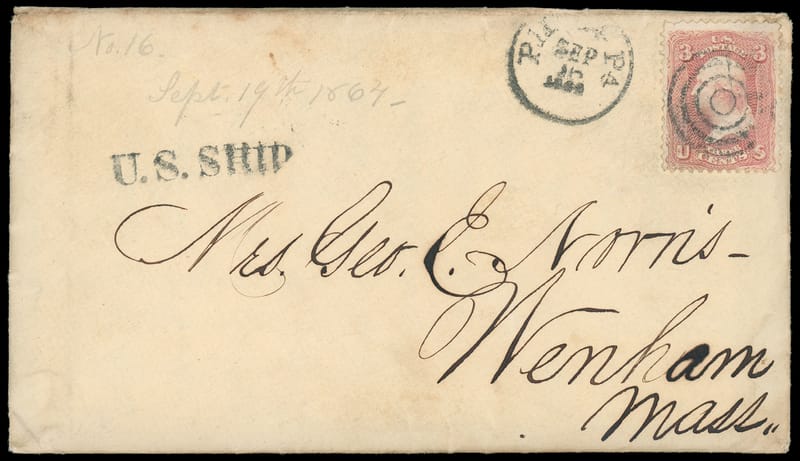 No. 16.
Sept. 19th 1864-
SEP
PA
3 U.S. 3
POSTAGE
U CENTS S
U.S. SHIP
Mrs. Geo. E. Norris-
Wenham
Mass.,